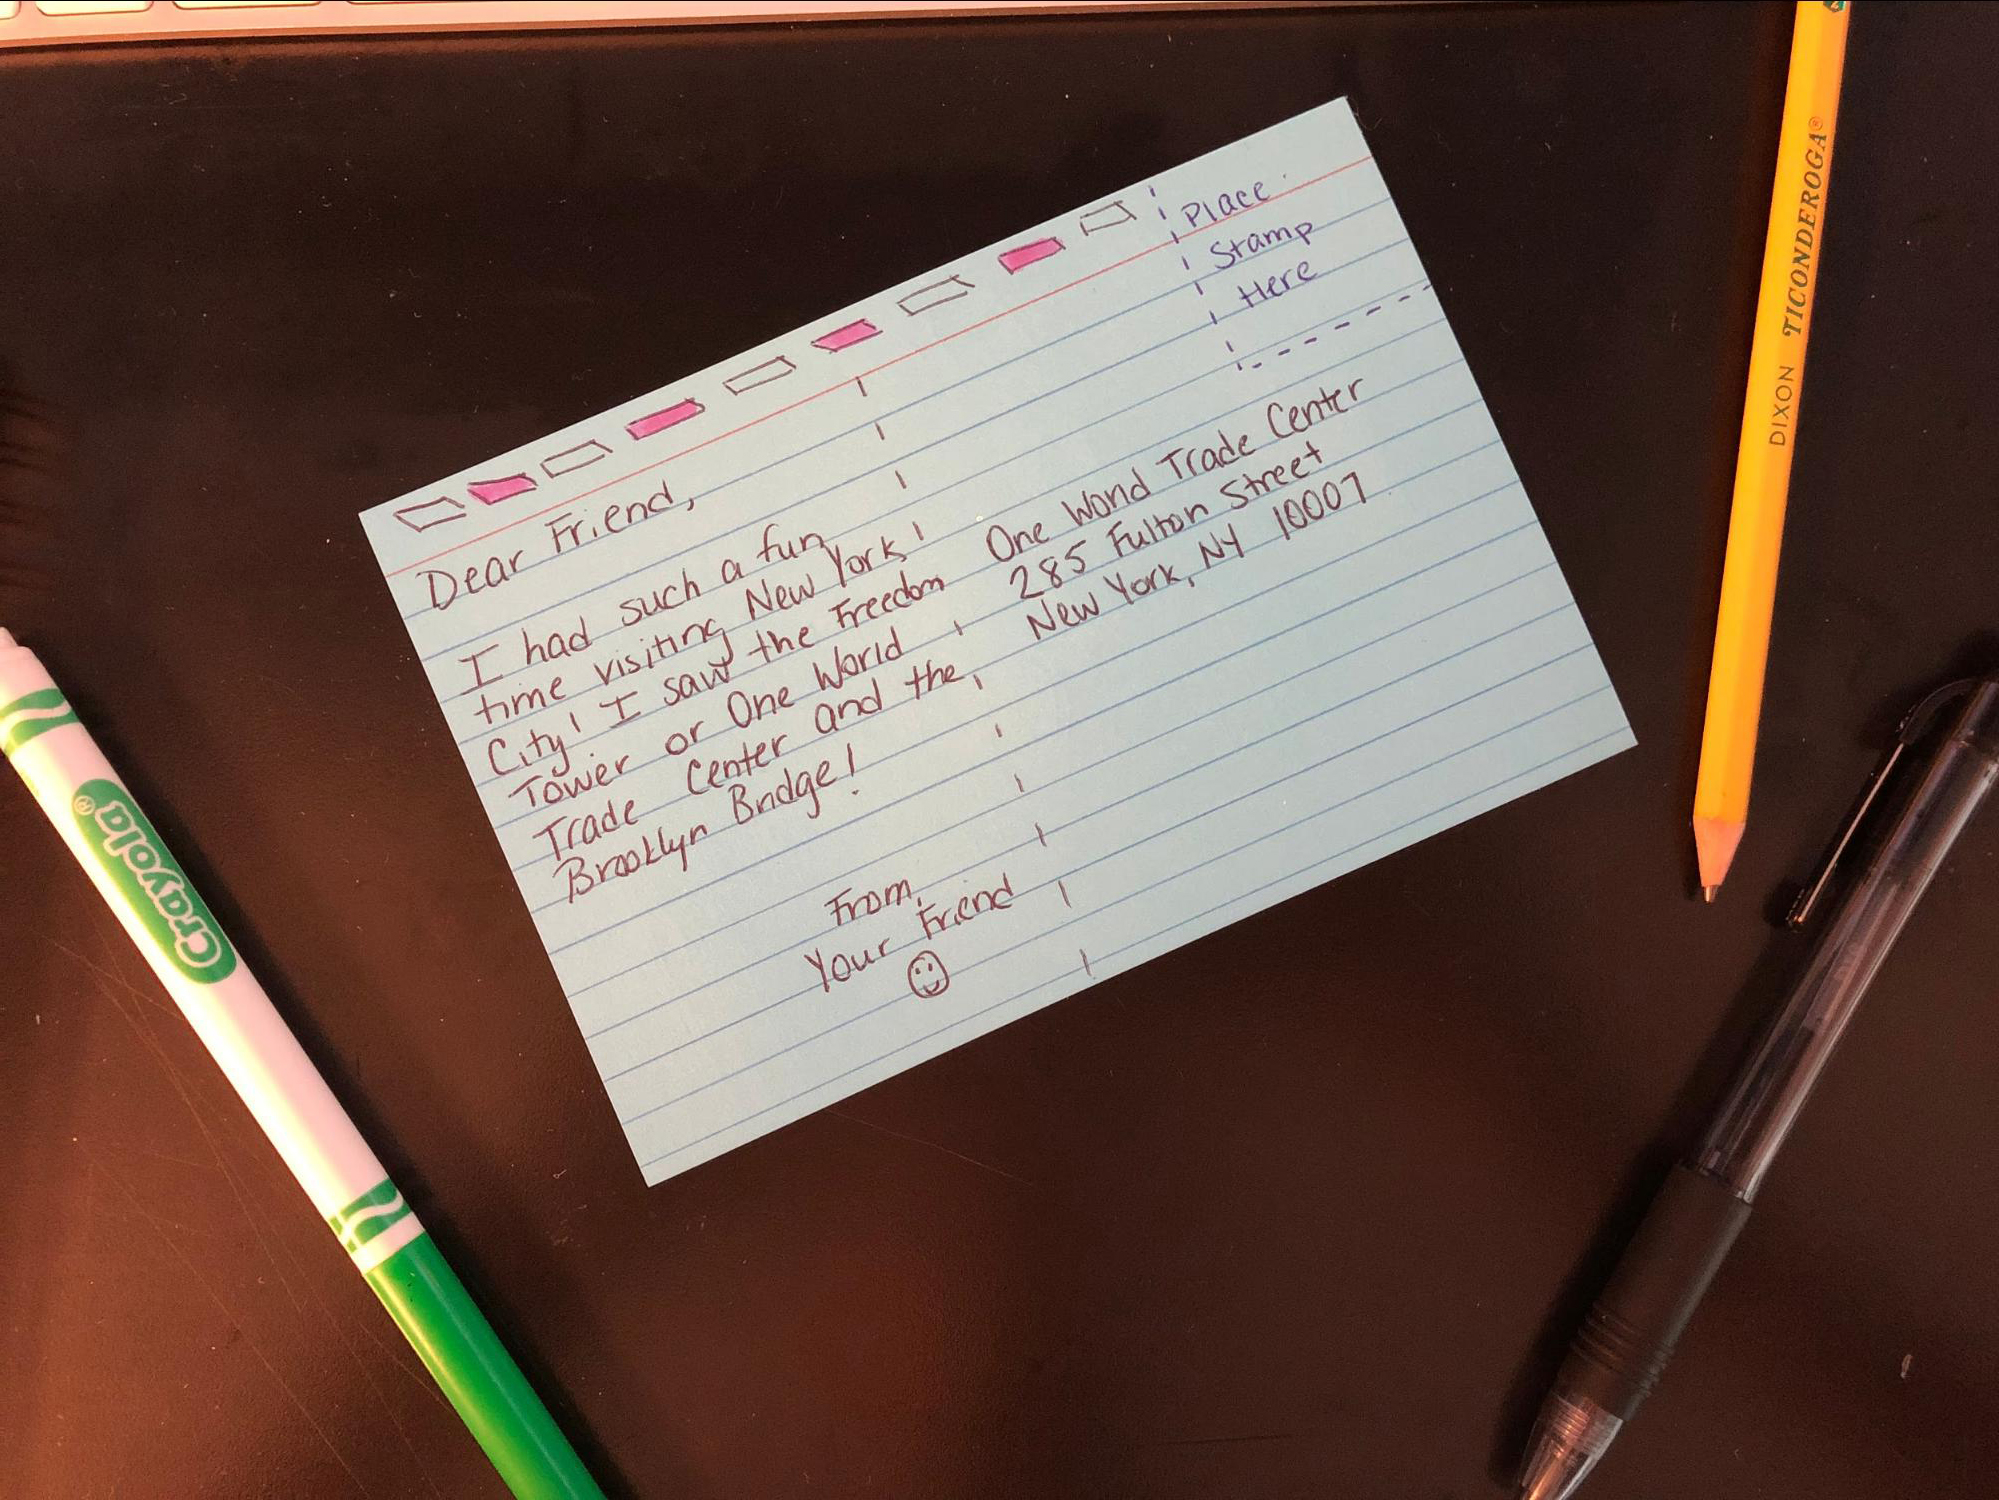 Place
Stamp
Here
Dear Friend,
I had such a fun
time visiting New York
City! I saw the Freedom
Tower or One World
Trade Center and the
Brooklyn Bridge!
From,
Your Friend
One World Trade Center
285 Fulton Street
New York, NY 10007
Crayola®
DIXON TICONDEROGA®